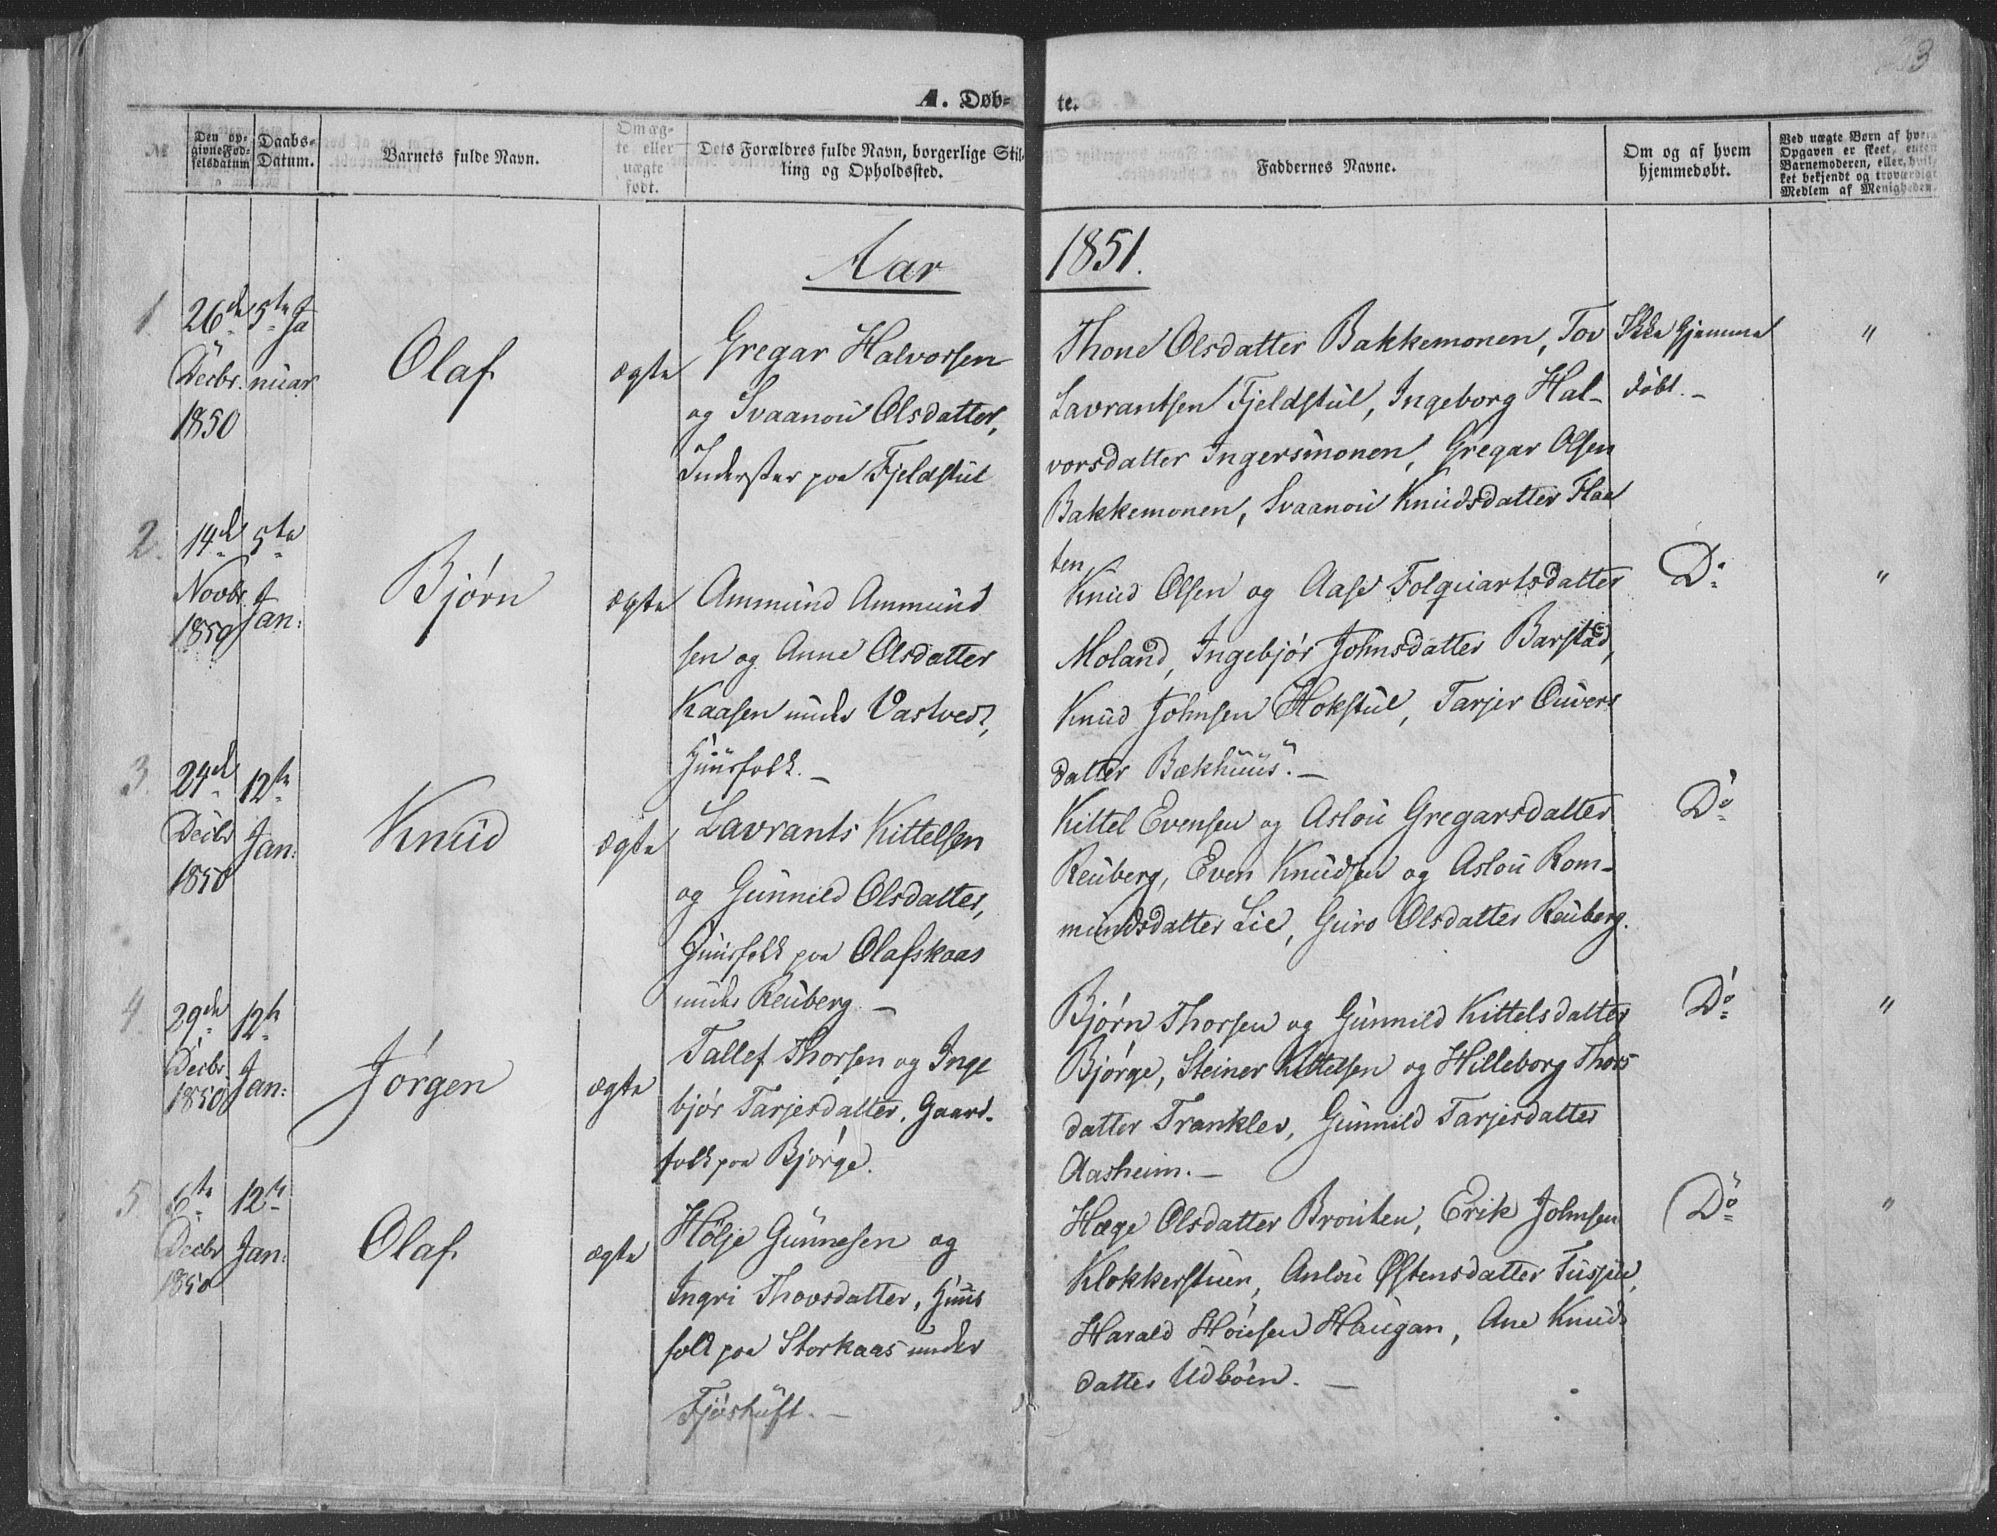 A. Døb- te.
Den op-
givne Fød-
selsdatum
Daabs-
Datum.
Barnets fulde Navn.
Om æg-
te eller
uægte
født.
Dets Forældres fulde Navn, borgerlige Stil-
ling og Opholdssted.
Faddernes Navne.
Om og af hvem
hjemmedøbt.
Ved uægte Børn af hvem
Opgaven er skeet, enten
Barnemoderen, eller, hvil-
ket bekjendt og troværdigt
Medlem af Menigheden.
Aar 1851.
1.
26de
Decbr.
1850
5te Ja
nuar
Olaf
ægte
Gregar Halvorsen
og Svaanou Olsdatter,
Inderster paa Fjeldstul
Thone Olsdatter Bakkemonen, Tov
Lavrantsen Fjeldstul, Ingeborg Hal-
vorsdatter Ingersmonen, Gregar Olsen
Bakkemonen, Svaanou Knudsdatter Flaa
ten
Ikke hjemme
døbt.
"
2.
14de
Novbr.
1850
5te
Jan:
Bjørn
ægte
Ammund Ammund
sen og Anne Olsdatter
Kaasen under Vastved,
Huusfolk.
Knud Olsen og Aase Folquartsdatter
Moland, Ingebjør Johnsdatter Barstad,
Knud Johnsen Hokstul, Tarjer Ouvers
datter Bækhuus.
Do
"
3.
24de
Decbr
1850
12te
Jan:
Knud
ægte
Lavrants Kittelsen
og Gunnild Olsdatter,
Huusfolk paa Olafskaas
under Reuberg
Kittel Evensen og Aslou Gregarsdatter
Reuberg, Even Knudsen og Aslou Rom-
mundsdatter Lie, Guro Olsdatter Reuberg.
Do
4.
29de
Decbr.
1850
12te
Jan:
Jørgen
ægte
Tallef Thorsen og Inge
bjør Tarjesdatter, Gaard-
folk paa Bjørge.
Bjørn Thorsen og Gunnild Kittelsdatter
Bjørge, Steiner Kittelsen og Hilleborg Thors
datter Trankler, Gunnild Tarjesdatter
Aasheim.
Do
"
5.
6te
Decbr
1850
12te
Jan:
Olaf
ægte
Hølje Gunnesen og
Ingri Thovsdatter, Huus
folk paa Storkaas under
Fjøstuft.
Hæge Olsdatter Brouten, Erik Johnsen
Klokkerstuen, Anlou Østensdatter
Harald Housen Haugan, Ane Knuds
datter Udbøen.
Do
"